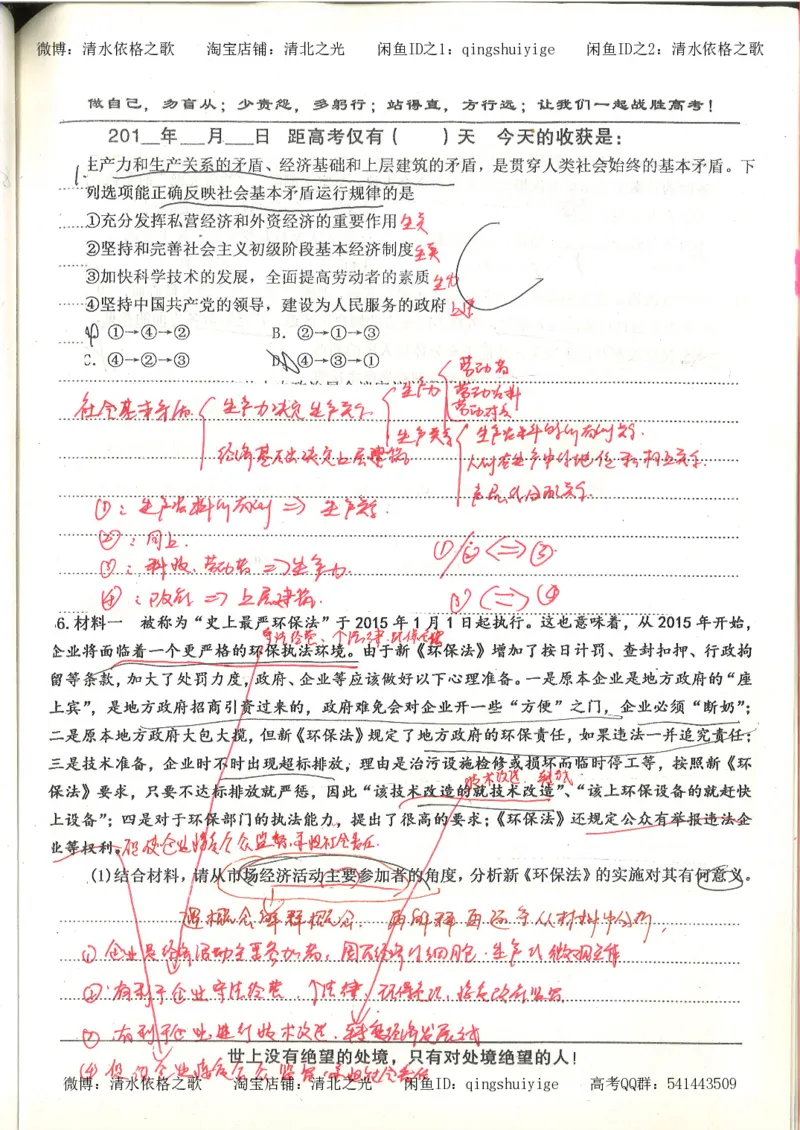 微博：清水依格之歌 淘宝店铺：清北之光 闲鱼ID之1：qingshuiyige 闲鱼ID之2：清水依格之歌
做自己，勿盲从；少责怨，多躬行；站得直，方行远；让我们一起战胜高考！
201__年___月___日 距高考仅有（ ）天 今天的收获是：
1.
主产力和生产关系的矛盾、经济基础和上层建筑的矛盾，是贯穿人类社会始终的基本矛盾。下
列选项能正确反映社会基本矛盾运行规律的是
①充分发挥私营经济和外资经济的重要作用 生关
②坚持和完善社会主义初级阶段基本经济制度 生关
③加快科学技术的发展，全面提高劳动者的素质 生力
④坚持中国共产党的领导，建设为人民服务的政府 上层
①→④→② B．②→①→③
C．④→②→③ D．④→③→①
社会基本矛盾 生产力决定生产关系 生产力 劳动者
劳动资料
劳动对象
经济基础决定上层建筑 生产关系 生产资料的所有制关系.
人们在生产中的地位和相互关系.
产品的分配关系.
①：生产资料所有制 => 生产关系.
②：同上.
③：科技、劳动者 => 生产力.
④：政府 => 上层建筑.
①/② <=> ③.
③ <=> ④
6.材料一 被称为“史上最严环保法”于 2015 年 1 月 1 日起执行。这也意味着，从 2015 年开始，
守法经营、个法律、环保意识
企业将面临着一个更严格的环保执法环境。由于新《环保法》增加了按日计罚、查封扣押、行政拘
留等条款，加大了处罚力度，政府、企业等应该做好以下心理准备。一是原本企业是地方政府的“座
上宾”，是地方政府招商引资过来的，政府难免会对企业开一些“方便”之门，企业必须“断奶”；
二是原本地方政府大包大揽，但新《环保法》规定了地方政府的环保责任，如果违法一并追究责任；
三是技术准备，企业时不时出现超标排放，理由是治污设施检修或损坏而临时停工等，按照新《环
技术改进
保法》要求，只要不达标排放就严惩，因此“该技术改造的就技术改造”、“该上环保设备的就赶快
上设备”；四是对于环保部门的执法能力，提出了很高的要求；《环保法》还规定公众有举报违法企
业等权利。促使企业接受公众监督，承担社会责任.
(1)结合材料，请从市场经济活动主要参加者的角度，分析新《环保法》的实施对其有何意义。
遇概念解释概念. 再解释
①企业是经济活动主要参加者，国民经济的细胞.生产
②有利于企业守法经营.
③有利于企业进行技术改进.转变经济发展方式
世上没有绝望的处境，只有对处境绝望的人！
④促使企业接受公众监督.承担社会责任
微博：清水依格之歌 淘宝店铺：清北之光 闲鱼ID：qingshuiyige 高考QQ群：541443509